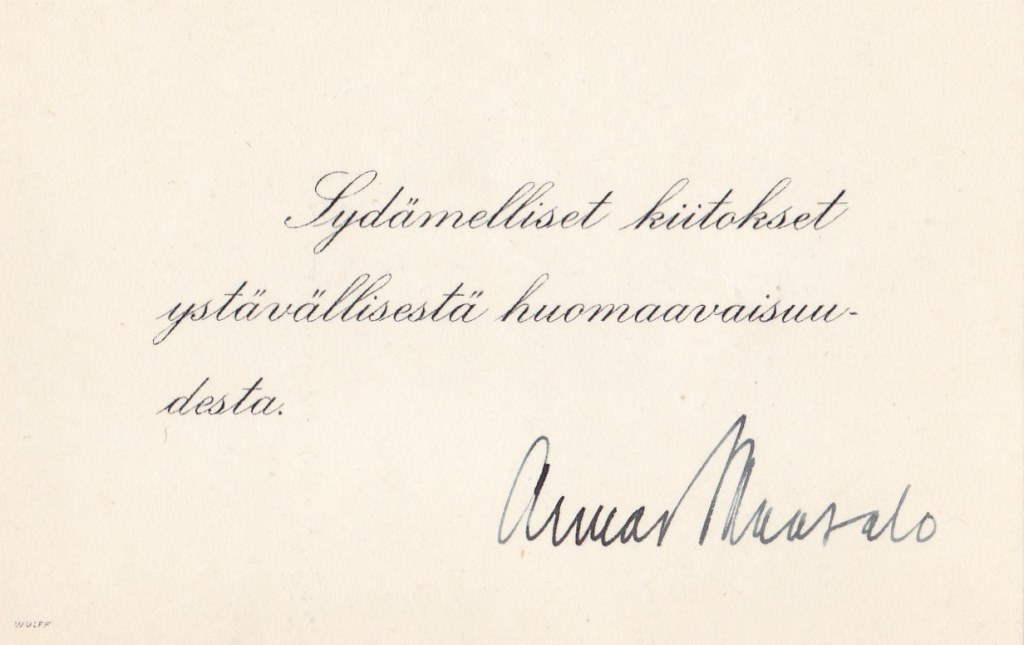 Sydämelliset kiitokset
ystävällisestä huomaavaisuu-
desta.
Armas Maasalo
WULFF